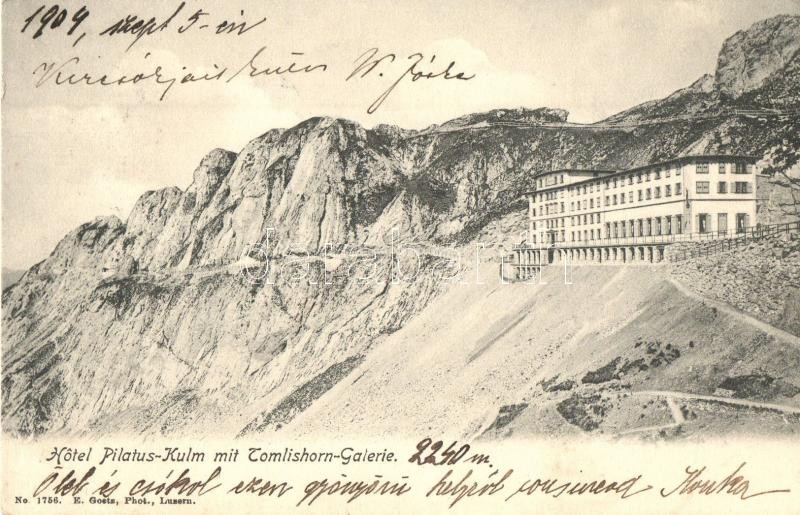 1904, szept 5-én
W. Jóska
darabanth
Hôtel Pilatus-Kulm mit Tomlishorn-Galerie. 2240 m.
Ölel és csókol ezen gyönyörű helyről
No. 1756. E. Goetz, Phot., Luzern.